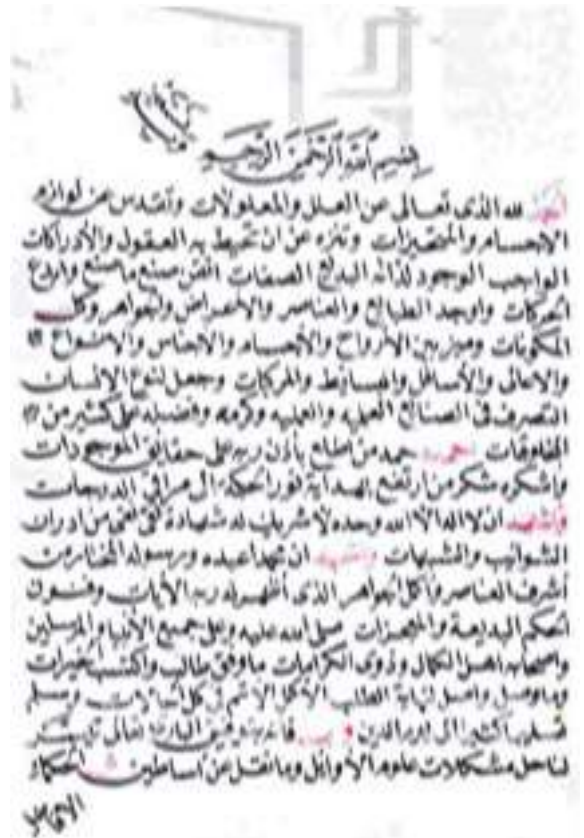 بسم الله الرحمن الرحيم
الحمد لله الذى تعالى عن العلل والمعلولات وتقدس عن لوازم
الاجسام والمتحيزات وتنزه عن ان تحيط به العقول والأدراكات
الواجب الوجود لذاته البديع الصفات اتقن صنع ما صنع وابدع
الحركات واوجد الطبائع والعناصر والأعراض والجواهر وكل
المكونات وميز بين الأرواح والأجسام والاجناس والانواع
والاعالى والأسافل والبسائط والمركبات وجعل لنوع الانسان
التصرف فى الصنائع العلميه والعمليه وكرمه وفضله على كثير من
المخلوقات احمده حمد من اطلع بأذن ربه على حقايق الموجودات
واشكره شكر من ارتفع بهداية نور الحكمة الى مراقى الدرجات
واشهد ان لا اله الا الله وحده لا شريك له شهادة من ادران
الشوائب والشبهات واشهد ان محمدا عبده ورسوله المختار من
أشرف العناصر وأكمل الجواهر الذى أظهر له ربه الأيات وفنون
الحكم البديعة والمعجزات صلى الله عليه وعلى جميع الأنبيا والمرسلين
واصحابه اهل الكمال وذوى الكرامات ما وفق طالب واكتسب الخيرات
وما وصل واصل لنهاية الطلب فى كل الحالات وسلم
تسليما كثيرا الى يوم الدين وبعد البارى تعالى
لنا حل مشكلات علوم الأوائل وما نقل عن أساطين الحكماء